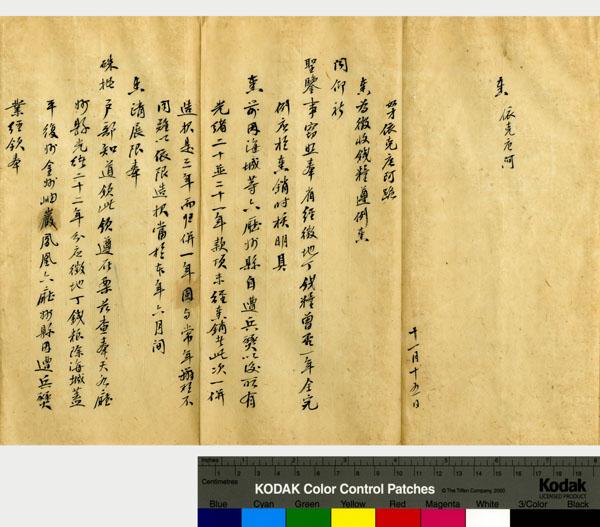 奏 依克唐阿
十一月十五日
奴才依克唐阿跪
奏為徵收錢糧遵例奏
聞仰祈
聖鑒事竊照奉省經徵地丁錢糧曾否一年全完
例應於奏銷時核明具
奏前因海城等六廳州縣自遭兵燹以後所有
光緒二十並二十一年款項未經奏銷此次一併
造報是三年而歸併一年因與常年辦理不
同難以依限造報當於本年六月間
奏請展限奉
硃批戶部知道欽此欽遵在案茲查奉天各廳
州縣光緒二十二年分應徵地丁錢糧除海城蓋
平復州金州岫巖鳳凰六廳州縣因遭兵燹
業經欽奉
inches
Centimetres
KODAK Color Control Patches
© The Tiffen Company, 2000
Kodak
LICENSED PRODUCT
Blue Cyan Green Yellow Red Magenta White 3/Color Black